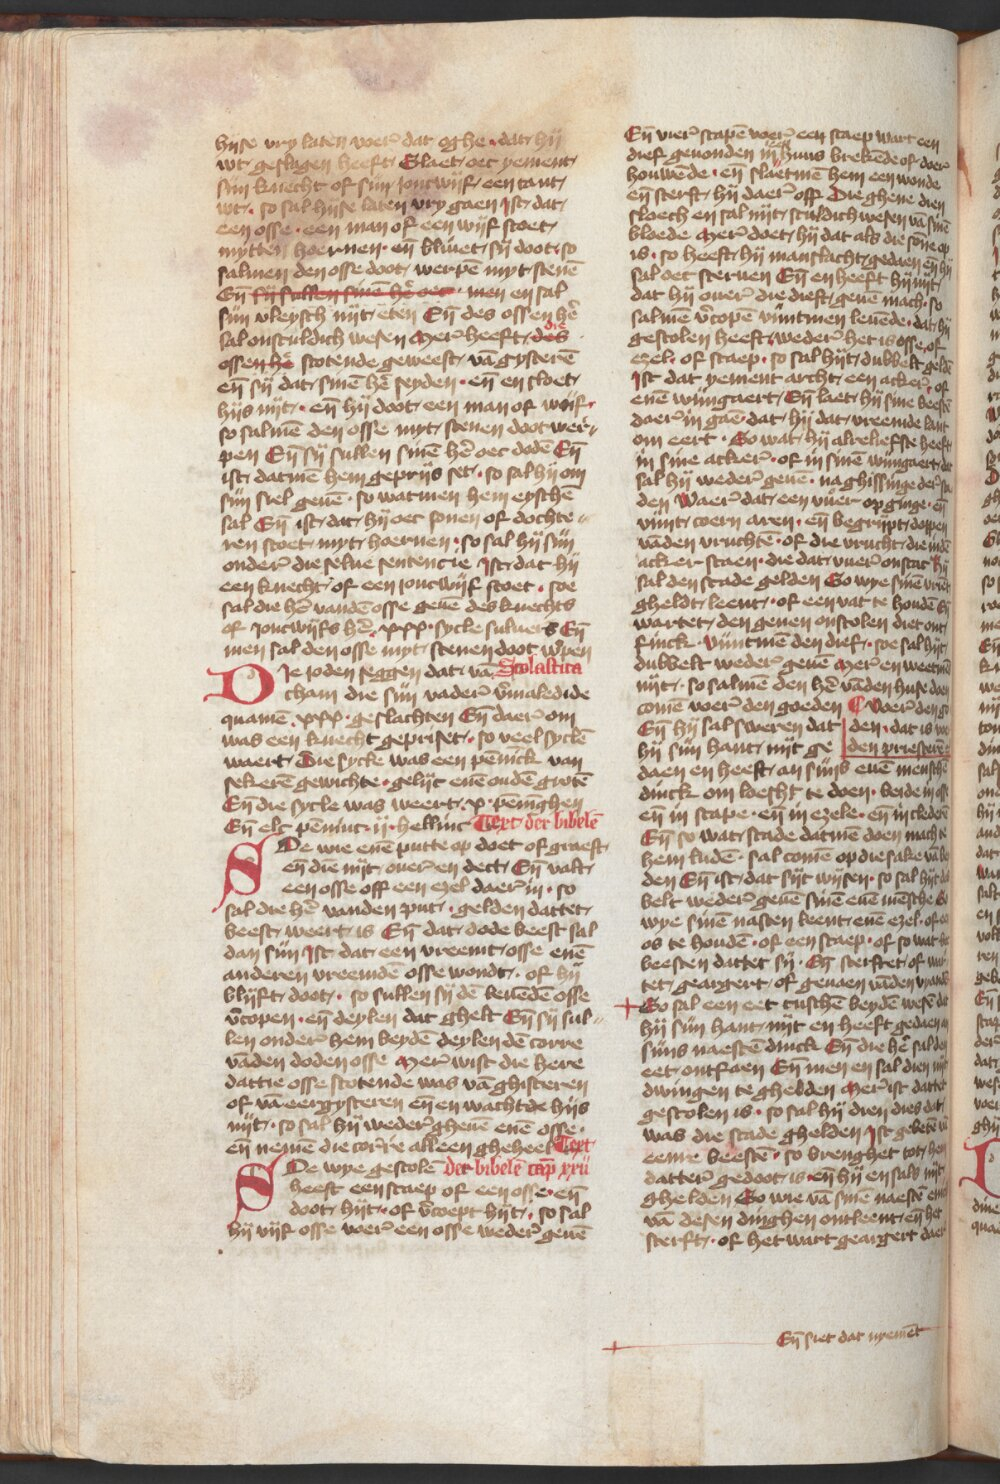 hijse vry laten voer̄ dat oghe · dat hij
wt geslagen heeft Slaet oec yement
sijn knecht of sijn joncwijf een tant
wt · so sal hijse laten vry gaen Jst dat
een osse · een man of een wijf stoet
mytten hoernen · en̄ blivet sij doot · so
salmen den osse doot werpē myt stenē
En̄ sij sullen sinē hē oec · men en sal
sijn vleysch nijt eten En̄ des ossen hē
sal onsculdich wesen Mer̄ heeft des die
ossen hē stotende geweest vā gysterē
en̄ sij dat sinē hē seyden · en̄ en sloet
hijs nijt · en̄ hij doot een man of wijf ·
so salmē den osse myt stenen doot wer
pen En̄ sij sullen sinē hē oec dodē En̄
ist datmē hem geprijs set · so sal hij om
sijn siel geuē · so watmen hem eyschē
sal En̄ ist dat hij oec sonen of dochte
ren stoet myt hoernen · so sal hij sijn
onder̄ die selue sentencie Jst dat hij
een knecht of een joncwijf stoet · soe
sal die hē vanden osse geuē des knechts
of joncwijfs hē · xxx · sycle siluers En̄
men sal den osse myt stenen doot w̄pen
Die joden seggen dat vā Scolastica
cham die sijn vader̄ v̄maledide
quamē · xxx · geslachten En̄ daer̄ om
was een knecht gepriset · so veel syclē
waert Die sycle was een pēnīck van
sekerē gewichte · gelijc enē ouden grotē
En̄ die sycle was weert · x · pēnīghen
En̄ elc pēninc · ij · hellinc Text der bibelē
So wie enē putte op doet of graeft
en̄ diē nijt ouer en dect En̄ valt
een osse off een ezel daer̄ in · so
sal die hē vanden put · gelden dattet
beest weert is En̄ dat dode beest sal
dan sijn Jst dat een vreemt osse enē
anderen vreemdē osse wondt · of hij
blijft doot · so sullen sij dē leuēdē osse
v̄copen · en̄ deylen dat ghelt En̄ sij sul
len onder̄ hem beydē deylen dē corre
vāden doden osse Mer̄ wist die here
dattie osse stotende was vā ghisteren
of vā eergysteren en̄ en wachtde hijs
nijt · so sal hij weder̄ gheuē enē osse ·
en̄ nemē die corre alleen gheheel Text
So wye gestolē der bibelē cap̄ xxij
heeft een scaep of een osse · en̄
doot hijt · of v̄coept hijt · so sal
hij vijf osse voer̄ een osse weder̄ geuē
En̄ vier̄ scapē voer̄ een scaep Wart een
dief geuonden in een huus brekēde of doer̄
houwēde · en̄ slaetmē hem een wonde
en̄ sterft hij daer̄ off Die ghene dien
sloech en sal nijt sculdich wesen vā sinē
bloede Mer̄ doet hij dat als die sōne op
is · so heeft hij manslacht gedaen en̄ hij
sal oec steruen En̄ en heeft hij nijt
dat hij ouer̄ die diefte geuē mach · so
salmē v̄copē Vijntmen leuēde · dat hij
gestolen heeft weder̄ het is osse · of
ezel · of scaep · so sal hijt dubbelt geldē
Jst dat yement archt een acker̄ · of
enē wijngaert En̄ laet hij sine beestē
daer̄ in gaē · dat hij dat vreemde lant
om eert · So wat hij alreliefste heeft
in sine acker̄ · of in sinē wijngaert dat
sal hij weder̄ geuē · na ghissinge der̄ sca
den Waer̄ dat een vuer op ginge · en̄
vint coern aren · en̄ begrijpt doppen
vāden vruchtē · of die vrucht die in dē
acker staen · die dat vuer̄ onstac hij
sal den scade gelden So wye sinē vriēt
gheldt leent · of een vat te houdē En̄
wartet den genen onstolen diet ont
finck · Vijntmē den dief · soe sal hijt
dubbelt weder̄ geuē Mer̄ en weetmē
nijt · so salmē den hē vāden huse doen
comē voer̄ den goeden ¶ Voer̄ den go
En̄ hij sal sweren dat den · dat is voer
hij sijn hant nijt ge den priester̄
daen en heeft an sijns euē menschē
dinck om loesheit te doen · beide in osse
en̄ in scape · en̄ in ezele · en̄ in clederē
En̄ so wat scade datmē doen mach te
hem ludē · sal comē op die sake vā bey
den En̄ ist dat sijt wijsen · so sal hijt dub
belt weder̄ geuē sinē euē mēsche So
wye sinē nasten leent enē ezel · of een
os te houdē · of een scaep · of so wat
beesten dattet sij · En̄ sterftet of wor
tet geargert of genaen vāden vyanden
So sal een eet tusschē beydē wesē dat
hij sijn hant nijt en heeft gedaen an
sijns naestē dinck En̄ die hē sal den
eet ontfaen En̄ men en sal dien nijt
dwingen te ghelden Mer̄ ist dattet
gestolen is · so sal hij dien dies dat
was die scade ghelden Jst gebetē vā
eenre beestē · so brenghet tot hem
datter̄ gedoot is · en̄ hij en sals nijt
ghelden So wie vā sinē naestē enich
vā desen dinghen ontleent · en̄ het
sterft · of het wart geargert daer
En̄ siet dat nyemēt